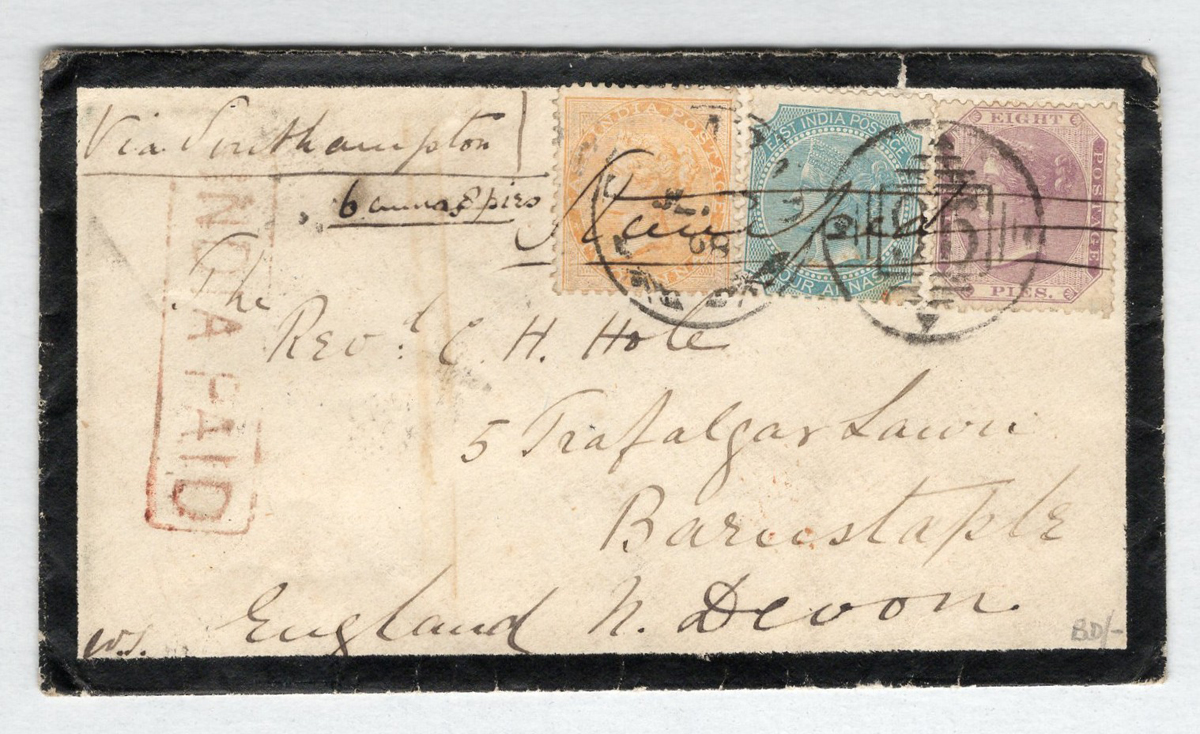 Via Southampton
6 annas 8 pies
INDIA PAID
INDIA POSTAGE
EAST INDIA POSTAGE
FOUR ANNAS
EIGHT
POSTAGE
PIES.
68
The
Revd. E. H. Hole
5 Trafalgar Lawn
Barnstaple
England N. Devon
W.S.